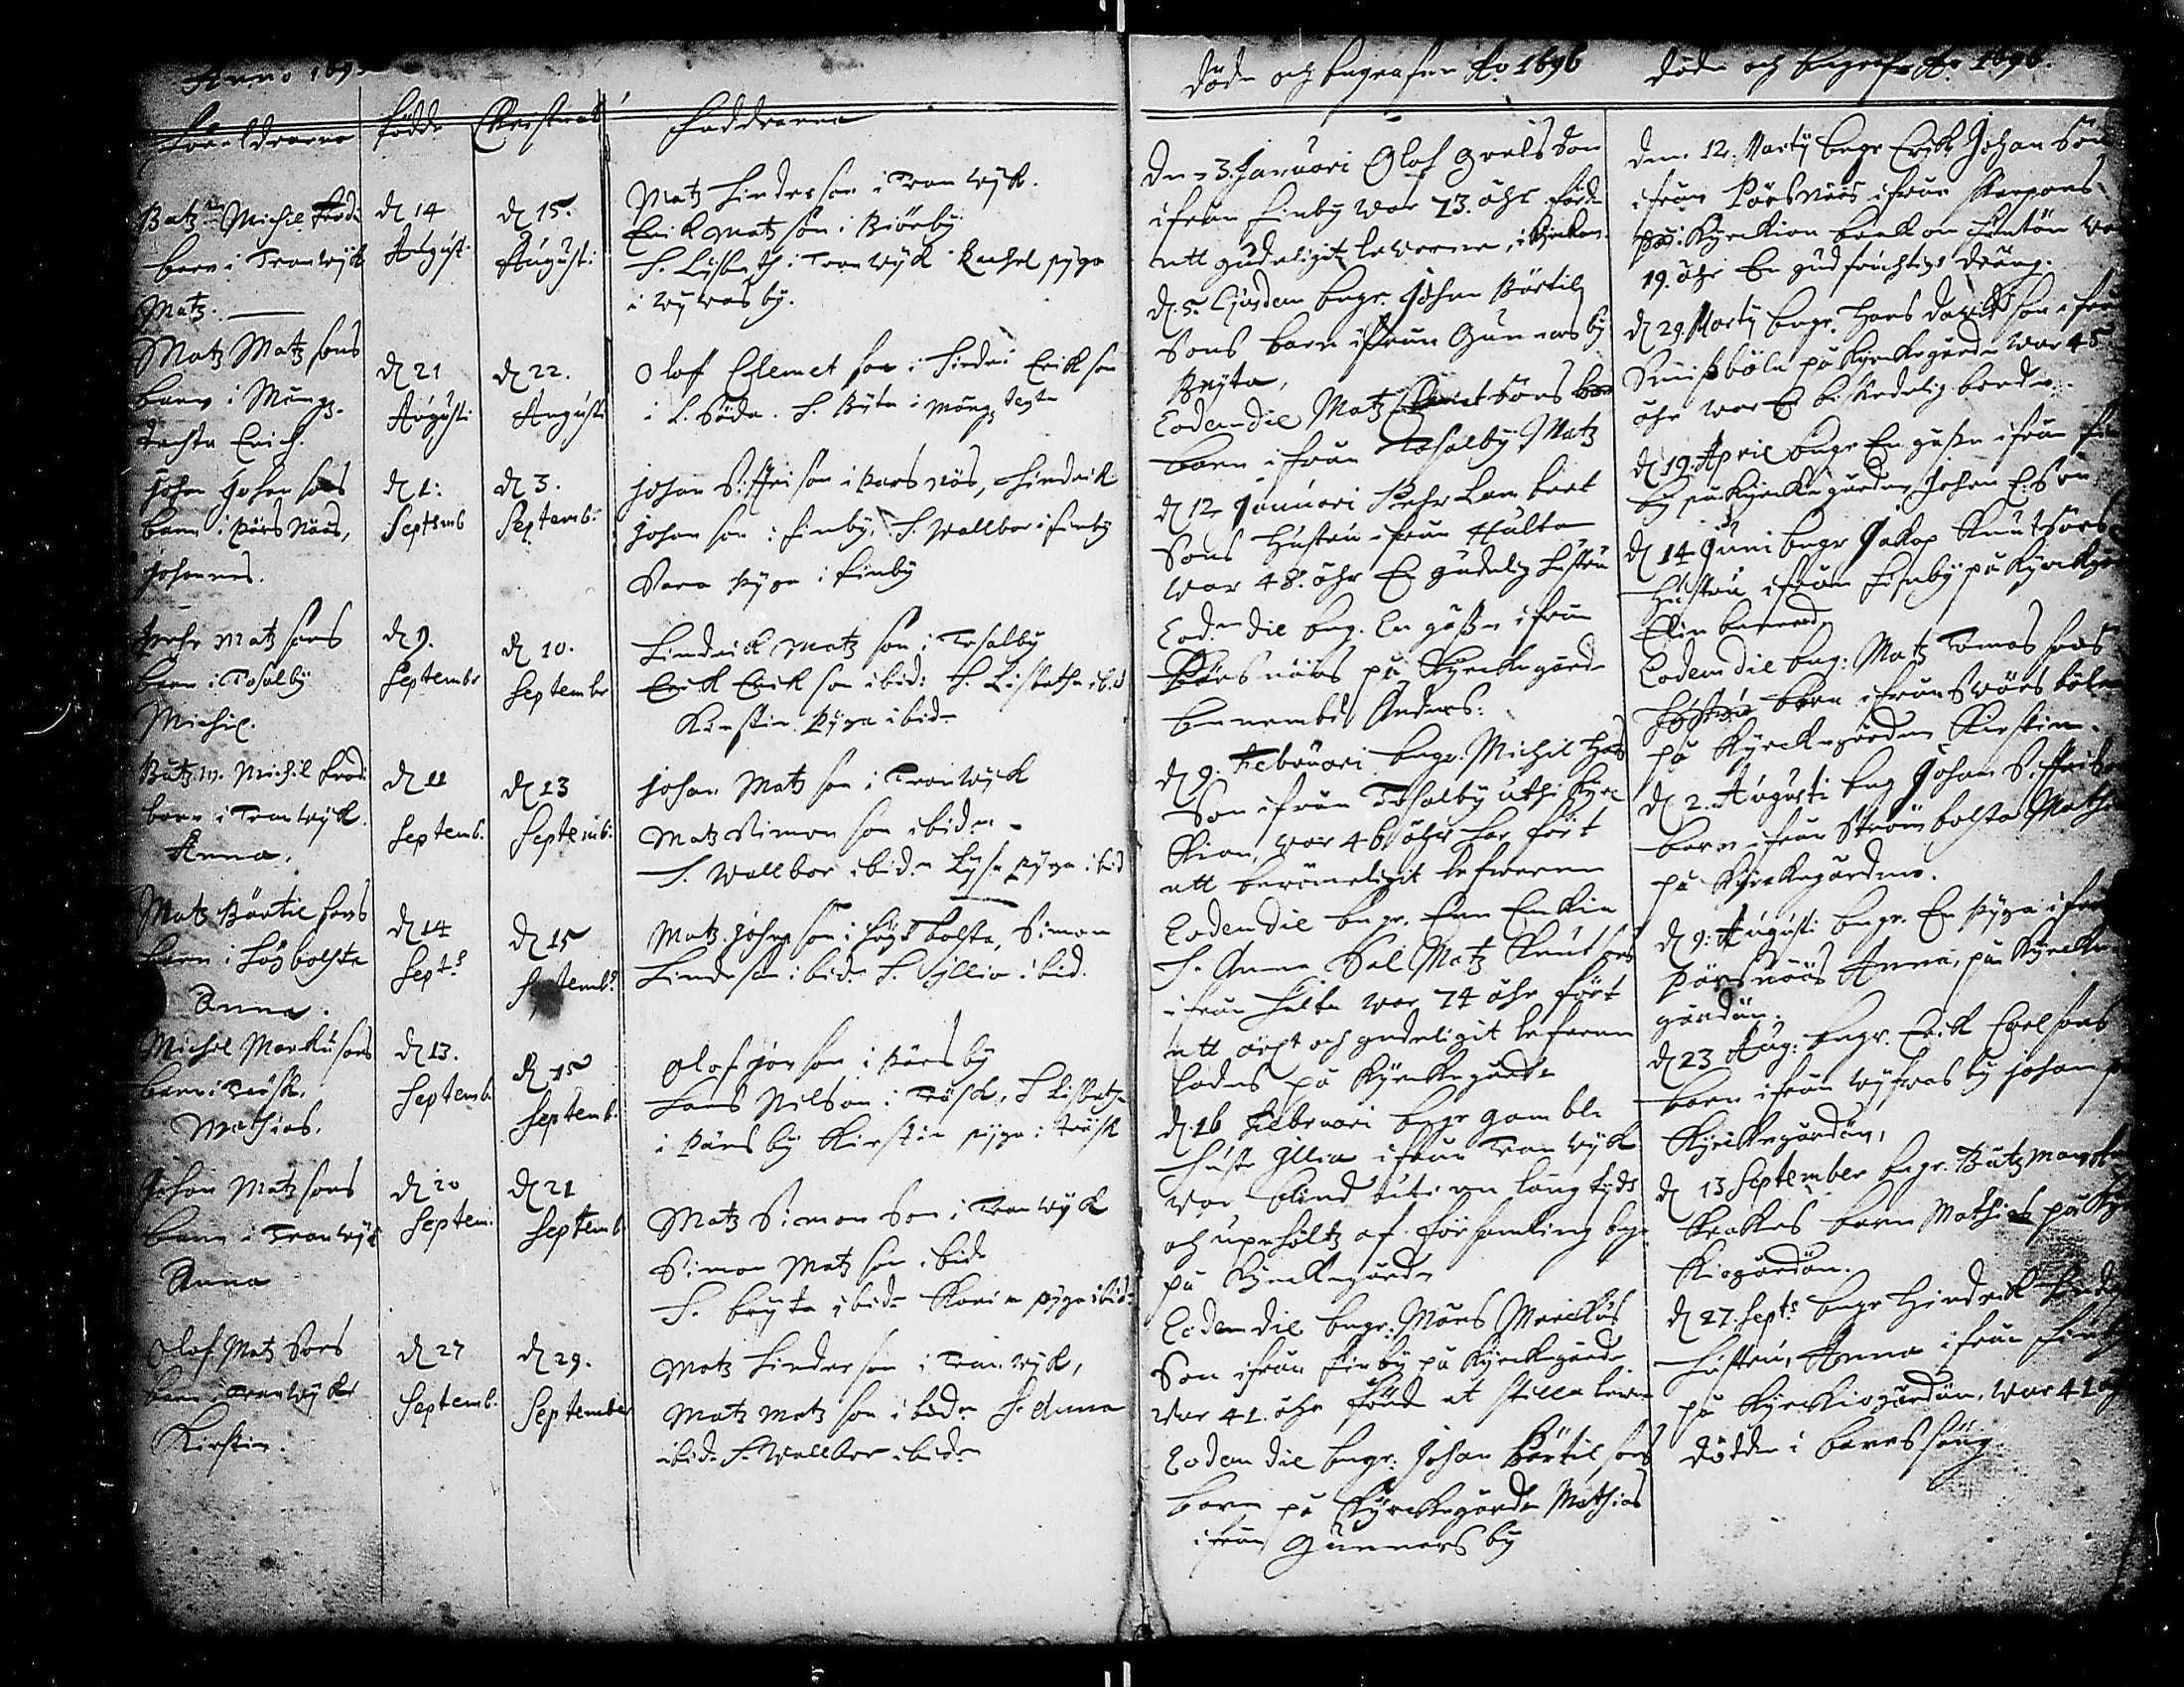 Anno 169
Föräldrarna födde Christnat Faddrarna
Batzm Michil Frodi
barn i Tranwijk
Matz.
d 14
August.
d 15.
Augusti
Matz Hinderson i Tranwijk.
Erik Matzson i Biörby
H. Lijsbeth i Tranwijk Rachel pyga
i wijwasby.
Matz Matz sons
barn i Mång
tachta Erich.
d 21
Augusti
d 22.
Augusti
Olof Clemet son i Erikson
i L. Böda. H. Byta i Mång
Johan Johan sons
barn i Pärsnäs,
Johannes.
d 1.
Septemb
d 3.
Septemb.
Johan Siffrison i Parsnäs, Hindrick
Johan son i Finby, H. Wallbor i Finby
Sara Pyga i Finby
Pehr Matz sons
barn i Tosalby
Michil.
d 9.
Septembr
d 10.
Septembr
Hindrick Matz son i Tosalby
Erik Erik son ibid: H. Lisbetha ibid
Kirstin Pyga ibid
Batz m. Michil Frodi
barn i Tranwijk.
Anna.
d 11
Septemb.
d 13
Septemb.
Johan Matz son i Tranwijk
Matz Simon son ibidm
H. Wallbor ibidm Lijsa pyga ibid
Matz Bärtil sons
barn i Högbolsta
Anna.
d 14
Septs
d 15
Septembs
Matz Johan son i Högbolsta, Simon
Hinderson ibid. H. Gillia ibid.
Michel Markusons
barn i Träsk,
Mathias.
d 13.
Septemb.
d 15
Septemb.
Olof Jörson i Pärsby
Hans Nilson i Träsk, H Lisbetha
i Pärsby Kirstin pyga i Träsk
Johan Matz sons
barn i Tranwijk
Anna
d 20
Septem.
d 21
Septemb
Matz Simon son i Tranwijk
Simon Matz son ibid
H. bryta ibid Karin pyga ibid
Olof Matz sons
barn i Tranwijk
Kirstin.
d 27
Septemb.
d 29.
September
Matz Hinderson i Tranwijk,
Matz Matz son ibidm H. Anna
ibid H Wallbor ibidm
döde och begrafne Ao 1696
Den 3. Januari Olof Grels son
ifrån Finby war 73. åhr förde
ett gudeligit leverne, i kyrkan.
d. 5. Ejusdem begr. Johan Bärtil
sons barn ifrån Gunnarsby
Bryta,
Eodem die Matz sons
barn ifrån Tosalby Matz
d 12 Januari Pehr Lambert
sons Hustru ifrån Hulta
war 48. åhr En gudelig hustru
Eod.m die beg. En gosse ifrån
Pärsnäs på Kyrckegårde
benembd Anders:
d 9. Februari begr. Michil Hans
son ifrån Tosalby uthi Kyrc
kian, war 46 åhr har fört
ett berömeligit lefwerne
Eodem die begr. Een Enkia
H. Anna Sal Matz Knutsons
ifrån Hulta war 74 åhr fört
ett ährt och gudeligit lefwerne
lades på Kyrckegårde
d. 16 Februari begr gamble
Hustr Illia ifrån Tranwijk
war blind uti en lång tijds
och upehöltz af församling begr.
på Kyrckegårde
Eodem die begr: Måns Markus
son ifrån Finby på Kyrckegårde
war 41. åhr förde et stilla lewer
Eodem die begr: Johan Bärtil sons
barn på Kyrckegårde Mathias
ifrån Gunnarsby
döde och begrafne Ao 1696.
Den 12. Martij begr Erick Johan son
ifrån Pärsnäs ifrån
Kyrckian wa
19. åhr En gudfruchtig dräng.
d 29 Martij begr. Hans David son ifrån
Smissböle på Kyrckegårde war 45
åhr war En beskedelig bonde.
d 19. April begr En gosse ifrån Fin
by på Kyrckegården Johan E: Son
d 14 Juni begr Jakop Knutsons
Hustru ifrån Finby på Kyrckgår
Elin benemd
Eodem die beg: Matz Tomas sons
Hustru barn ifrån Swärsböle
på Kyrckegården Kirstin.
d 2. Augusti beg Johan Siffrison
barn ifrån Strömbolsta Mathia
på Kyrckegården.
d 9. Augusti begr. En Pyga ifrån
Pärsnäs Anna, på Kyrckie
gårdän.
d 23 Aug: begr. Erik Erelsons
barn ifrån wijwasby Johan på
Kyrckegårdän,
d 13 September begr. Batzman
barn Mathias på Kyr
kiogårdän.
d 27. Septs begr Hindrick
Hustru, Anna ifrån Finby
på Kyrckiogårdän, war 41 åhr
dödde i barnsäng.